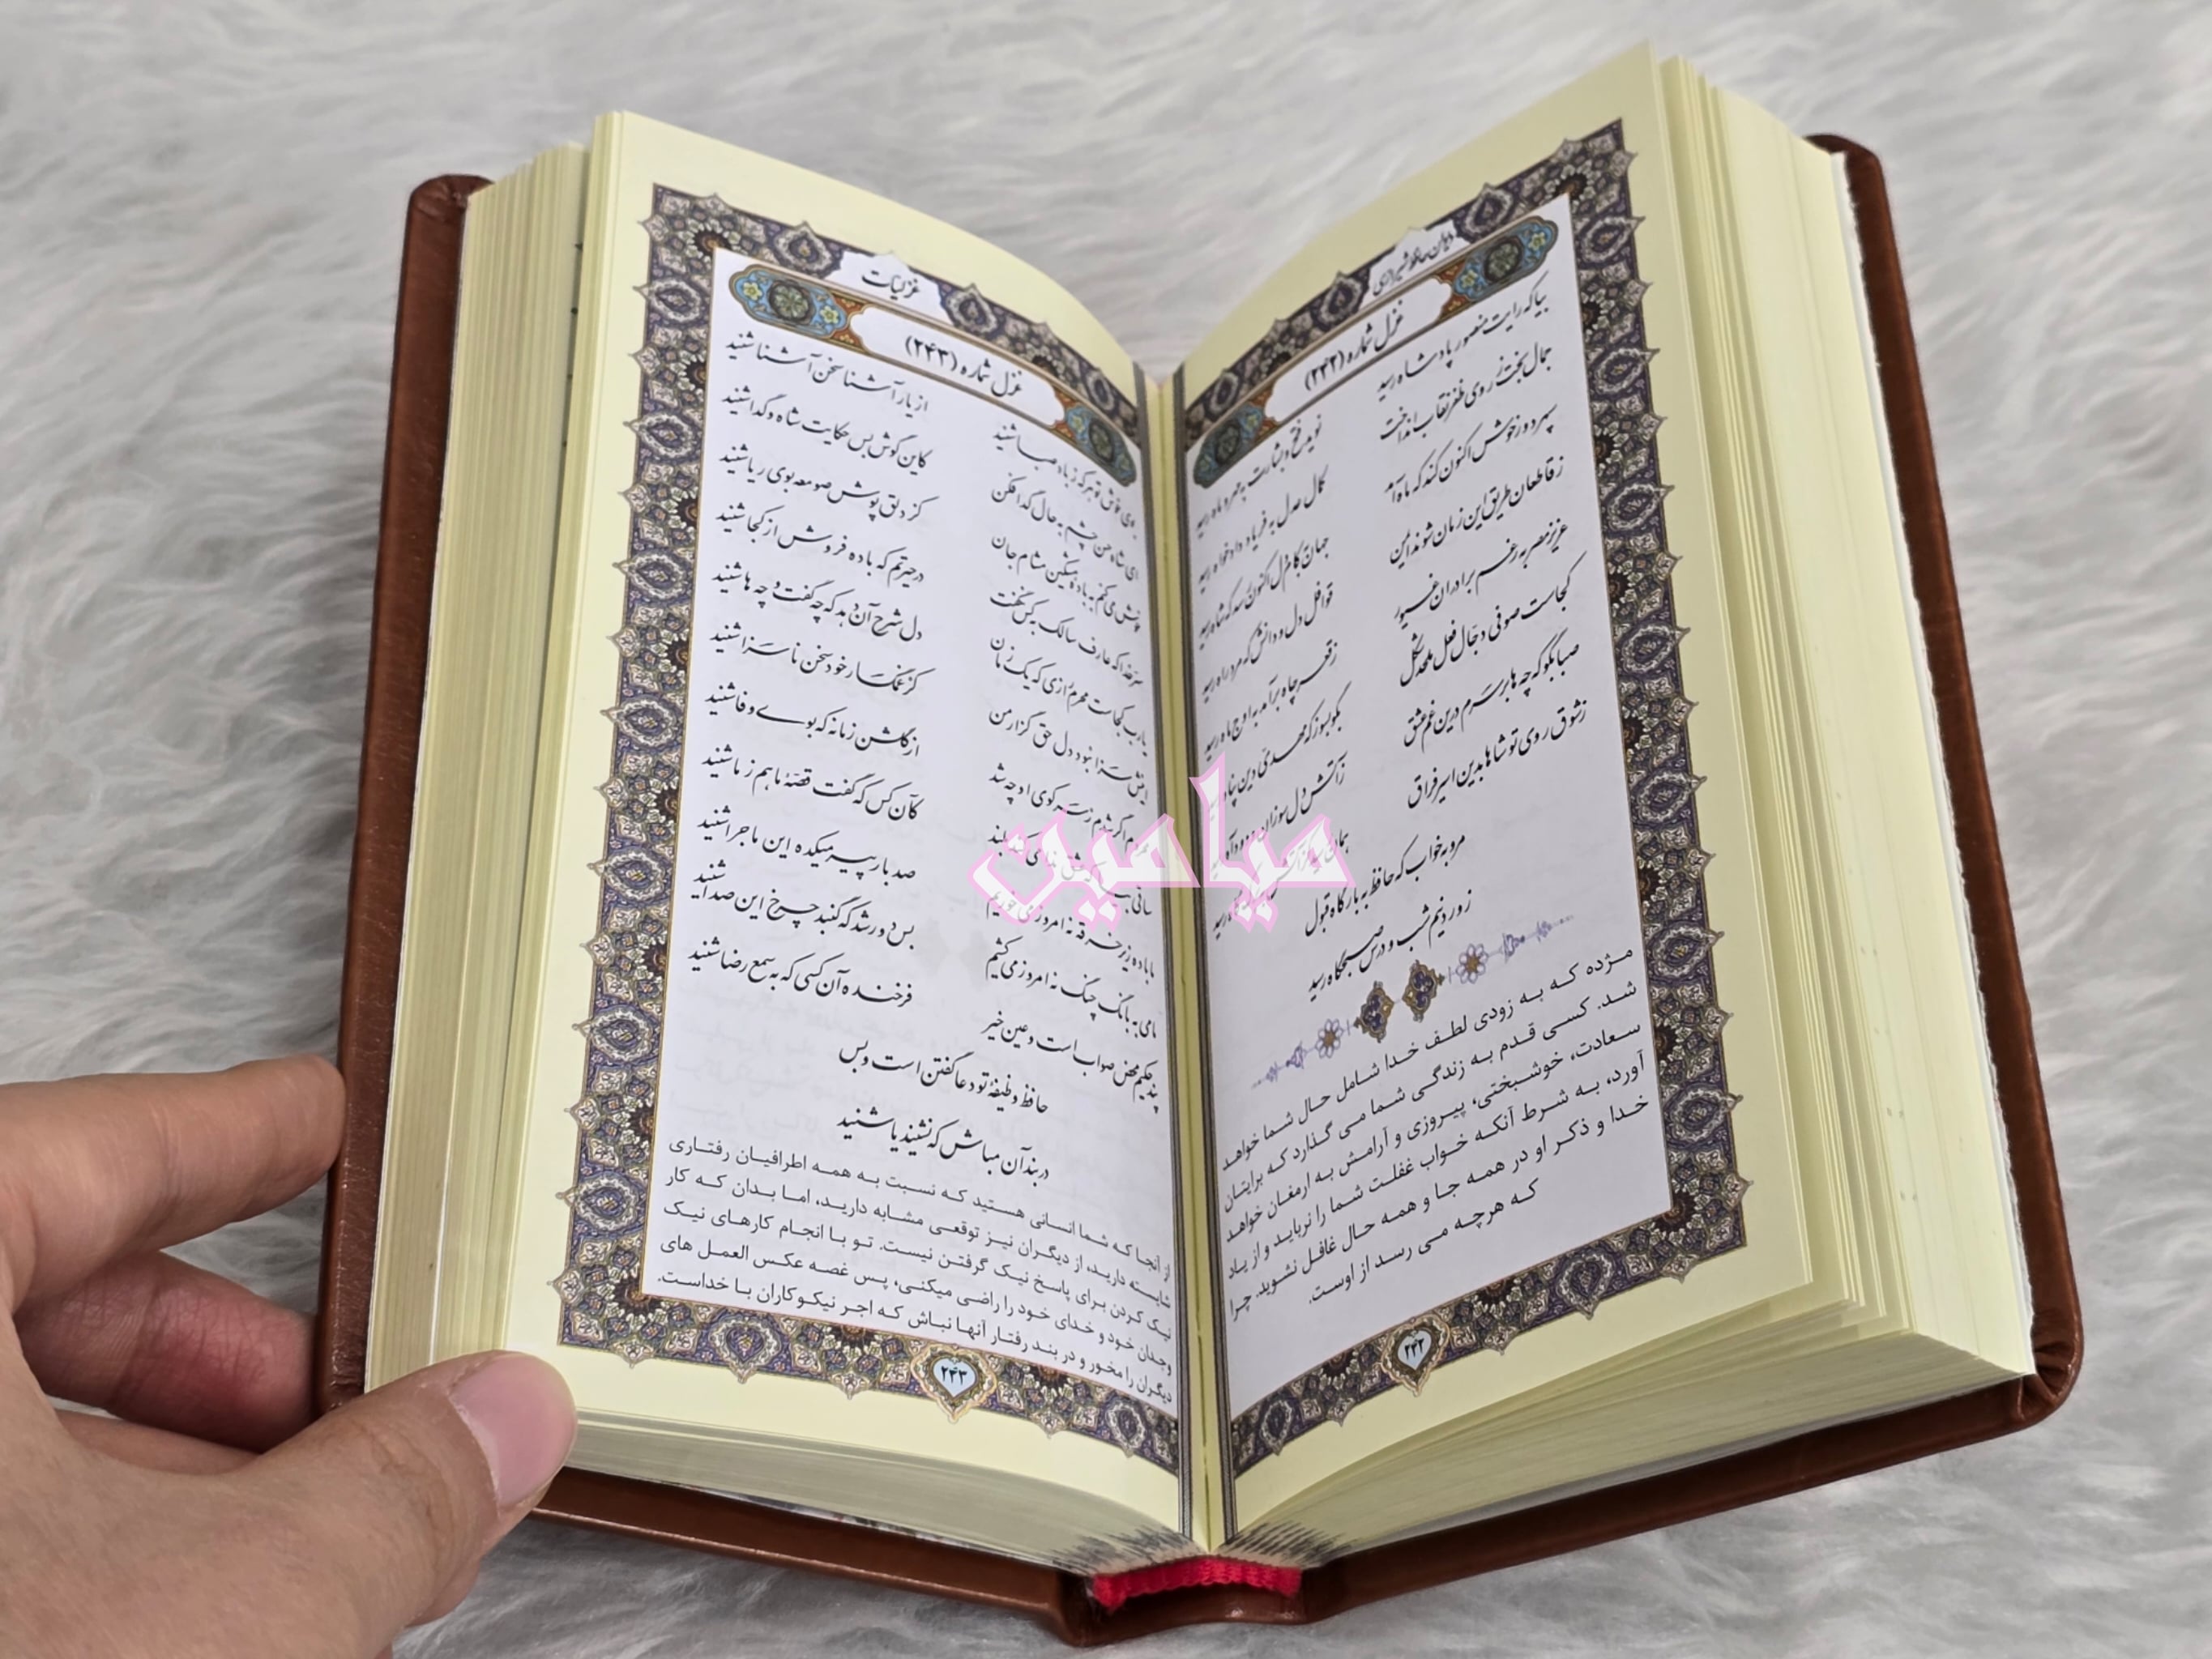 دیوان حافظ شیرازی
غزل شماره (۲۴۲)
بیا که رایت منصور پادشاه رسید نوید فتح و بشارت به مهر و ماه رسید
جمال بخت ز روی ظفر نقاب انداخت کمال عدل به فریاد دادخواه رسید
سپهر دور خوش اکنون کند که ماه آمد جهان به کام دل اکنون رسد که شاه رسید
ز قاطعان طریق این زمان شوند ایمن قوافل دل و دانش که مرد راه رسید
عزیز مصر به رغم برادران غیور ز قعر چاه برآمد به اوج ماه رسید
کجاست صوفی دجّال فعل ملحد شکل بگو بسوز که مهدی دین پناه
صبا بگو که چه ها بر سرم درین غم عشق ز آتش دل سوزان و دود آه
ز شوق روی تو شاها بدین اسیر فراق همان رسید کز آتش رسید
مرو به خواب که حافظ به بارگاه قبول
ز ورد نیم شب و درس صبحگاه رسید
مژده که به زودی لطف خدا شامل حال شما خواهد
شد. کسی قدم به زندگی شما می گذارد که برایتان
سعادت، خوشبختی، پیروزی و آرامش به ارمغان خواهد
آورد، به شرط آنکه خواب غفلت شما را نرباید و از یاد
خدا و ذکر او در همه جا و همه حال غافل نشوید. چرا
که هرچه می رسد از اوست.
۲۴۲
غزلیات
غزل شماره (۲۴۳)
بوی خوش تو هر که ز باد صبا شنید از یار آشنا سخن آشنا شنید
ای شاه حسن چشم به حال گدا فکن کاین گوش بس حکایت شاه و گدا شنید
خوش می کنم به باده مشکین مشام جان کز دلق پوش صومعه بوی ریا شنید
سر خدا که عارف سالک به کس نگفت در حیرتم که باده فروش از کجا شنید
یا رب کجاست محرم رازی که یک زمان دل شرح آن دهد که چه گفت و چه ها شنید
اینش سزا نبود دل حق گزار من کز غمگسار خود سخن ناسزا شنید
محروم اگر شدم ز سر کوی او چه شد از گلشن زمانه که بوی وفا شنید
ساقی بیا که عشق ندا می کند بلند کآن کس که گفت قصّهٔ ما هم ز ما شنید
ما باده زیر خرقه نه امروز می خوریم صد بار پیر میکده این ماجرا شنید
ما می به بانگ چنگ نه امروز می کشیم بس دور شد که گنبد چرخ این صدا شنید
پند حکیم محض صواب است و عین خیر فرخنده آن کسی که به سمع رضا شنید
حافظ وظیفهٔ تو دعا گفتن است و بس
در بند آن مباش که نشنید یا شنید
از آنجا که شما انسانی هستید که نسبت به همه اطرافیان رفتاری
شایسته دارید، از دیگران نیز توقعی مشابه دارید، اما بدان که کار
نیک کردن برای پاسخ نیک گرفتن نیست. تو با انجام کارهای نیک
وجدان خود و خدای خود را راضی میکنی، پس غصه عکس العمل های
دیگران را مخور و در بند رفتار آنها نباش که اجر نیکوکاران با خداست.
۲۴۳
میامین